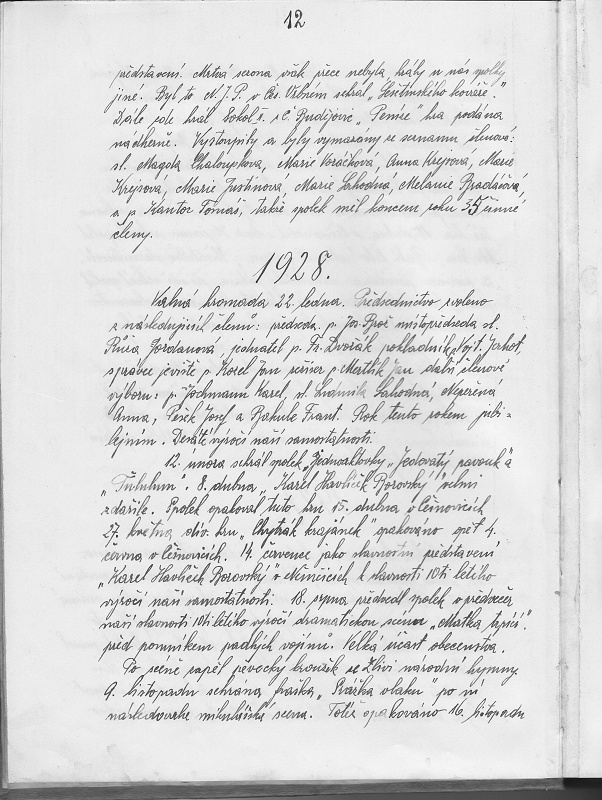 12
představení. Mrtvá sezona však přece nebyla, hrály u nás spolky
jiné. Byl to N. J. P. v Čes. Vrbném sehrál „Lešetínského kováře".
Dále zde hrál Sokol z. r. Č. Budějovic „Pemře" hra podána
nádherně. Vystoupily a byly vymazány ze seznamu členové:
sl. Magda Chaloupková, Marie Voráčková, Anna Krejsová, Marie
Krejsová, Marie Justinová, Marie Lahodná, Melanie Bradáčová
a p. Kantor Tomáš, takže spolek měl koncem roku 35 činné
členy.
1928.
Valná hromada 22. ledna. Předsednictvo zvoleno
z následujících členů: předseda p. Jos. Brož místopředseda sl.
Růža Jordanová, jednatel p. Fr. Dvořák pokladník Vojt. Jahoť,
správce jeviště p. Korel Jan revisor p. Mertlík Jan další členové
výboru: p. Jochmann Karel, sl. Ludmila Lahodná, Nepeřená
Anna, Pešek Josef a Bakule Frant. Rok tento rokem jubi-
lejním. Desáté výročí naší samostatnosti.
12. února sehrál spolek „Jednoaktovky „Jedovatý pavouk" a
„Turbulum". 8. dubna „Karel Havlíček Borovský" velmi
zdařile. Spolek opakoval tuto hru 15. dubna v Češnovicích
27. května div. hru „Chytrák krajánek" opakováno opět 4.
června v Češnovicích. 14. července jako slavnostní představení
„Karel Havlíček Borovský" v Němčicích k slavnosti 10ti letého
výročí naší samostatnosti. 18. srpna předvedl spolek v předvečer
naší slavnosti 10ti letého výročí dramatickou scénu „Matka zpívá".
před pomníkem padlých vojínů. Velká účast obecenstva.
Po scéně zapěl pěvecký kroužek ze Zlivi národní hymny.
9. listopadu sehrána fraška „Srážka vlaku" po ní
následovala mikulášská scena. Totéž opakováno 16. listopadu